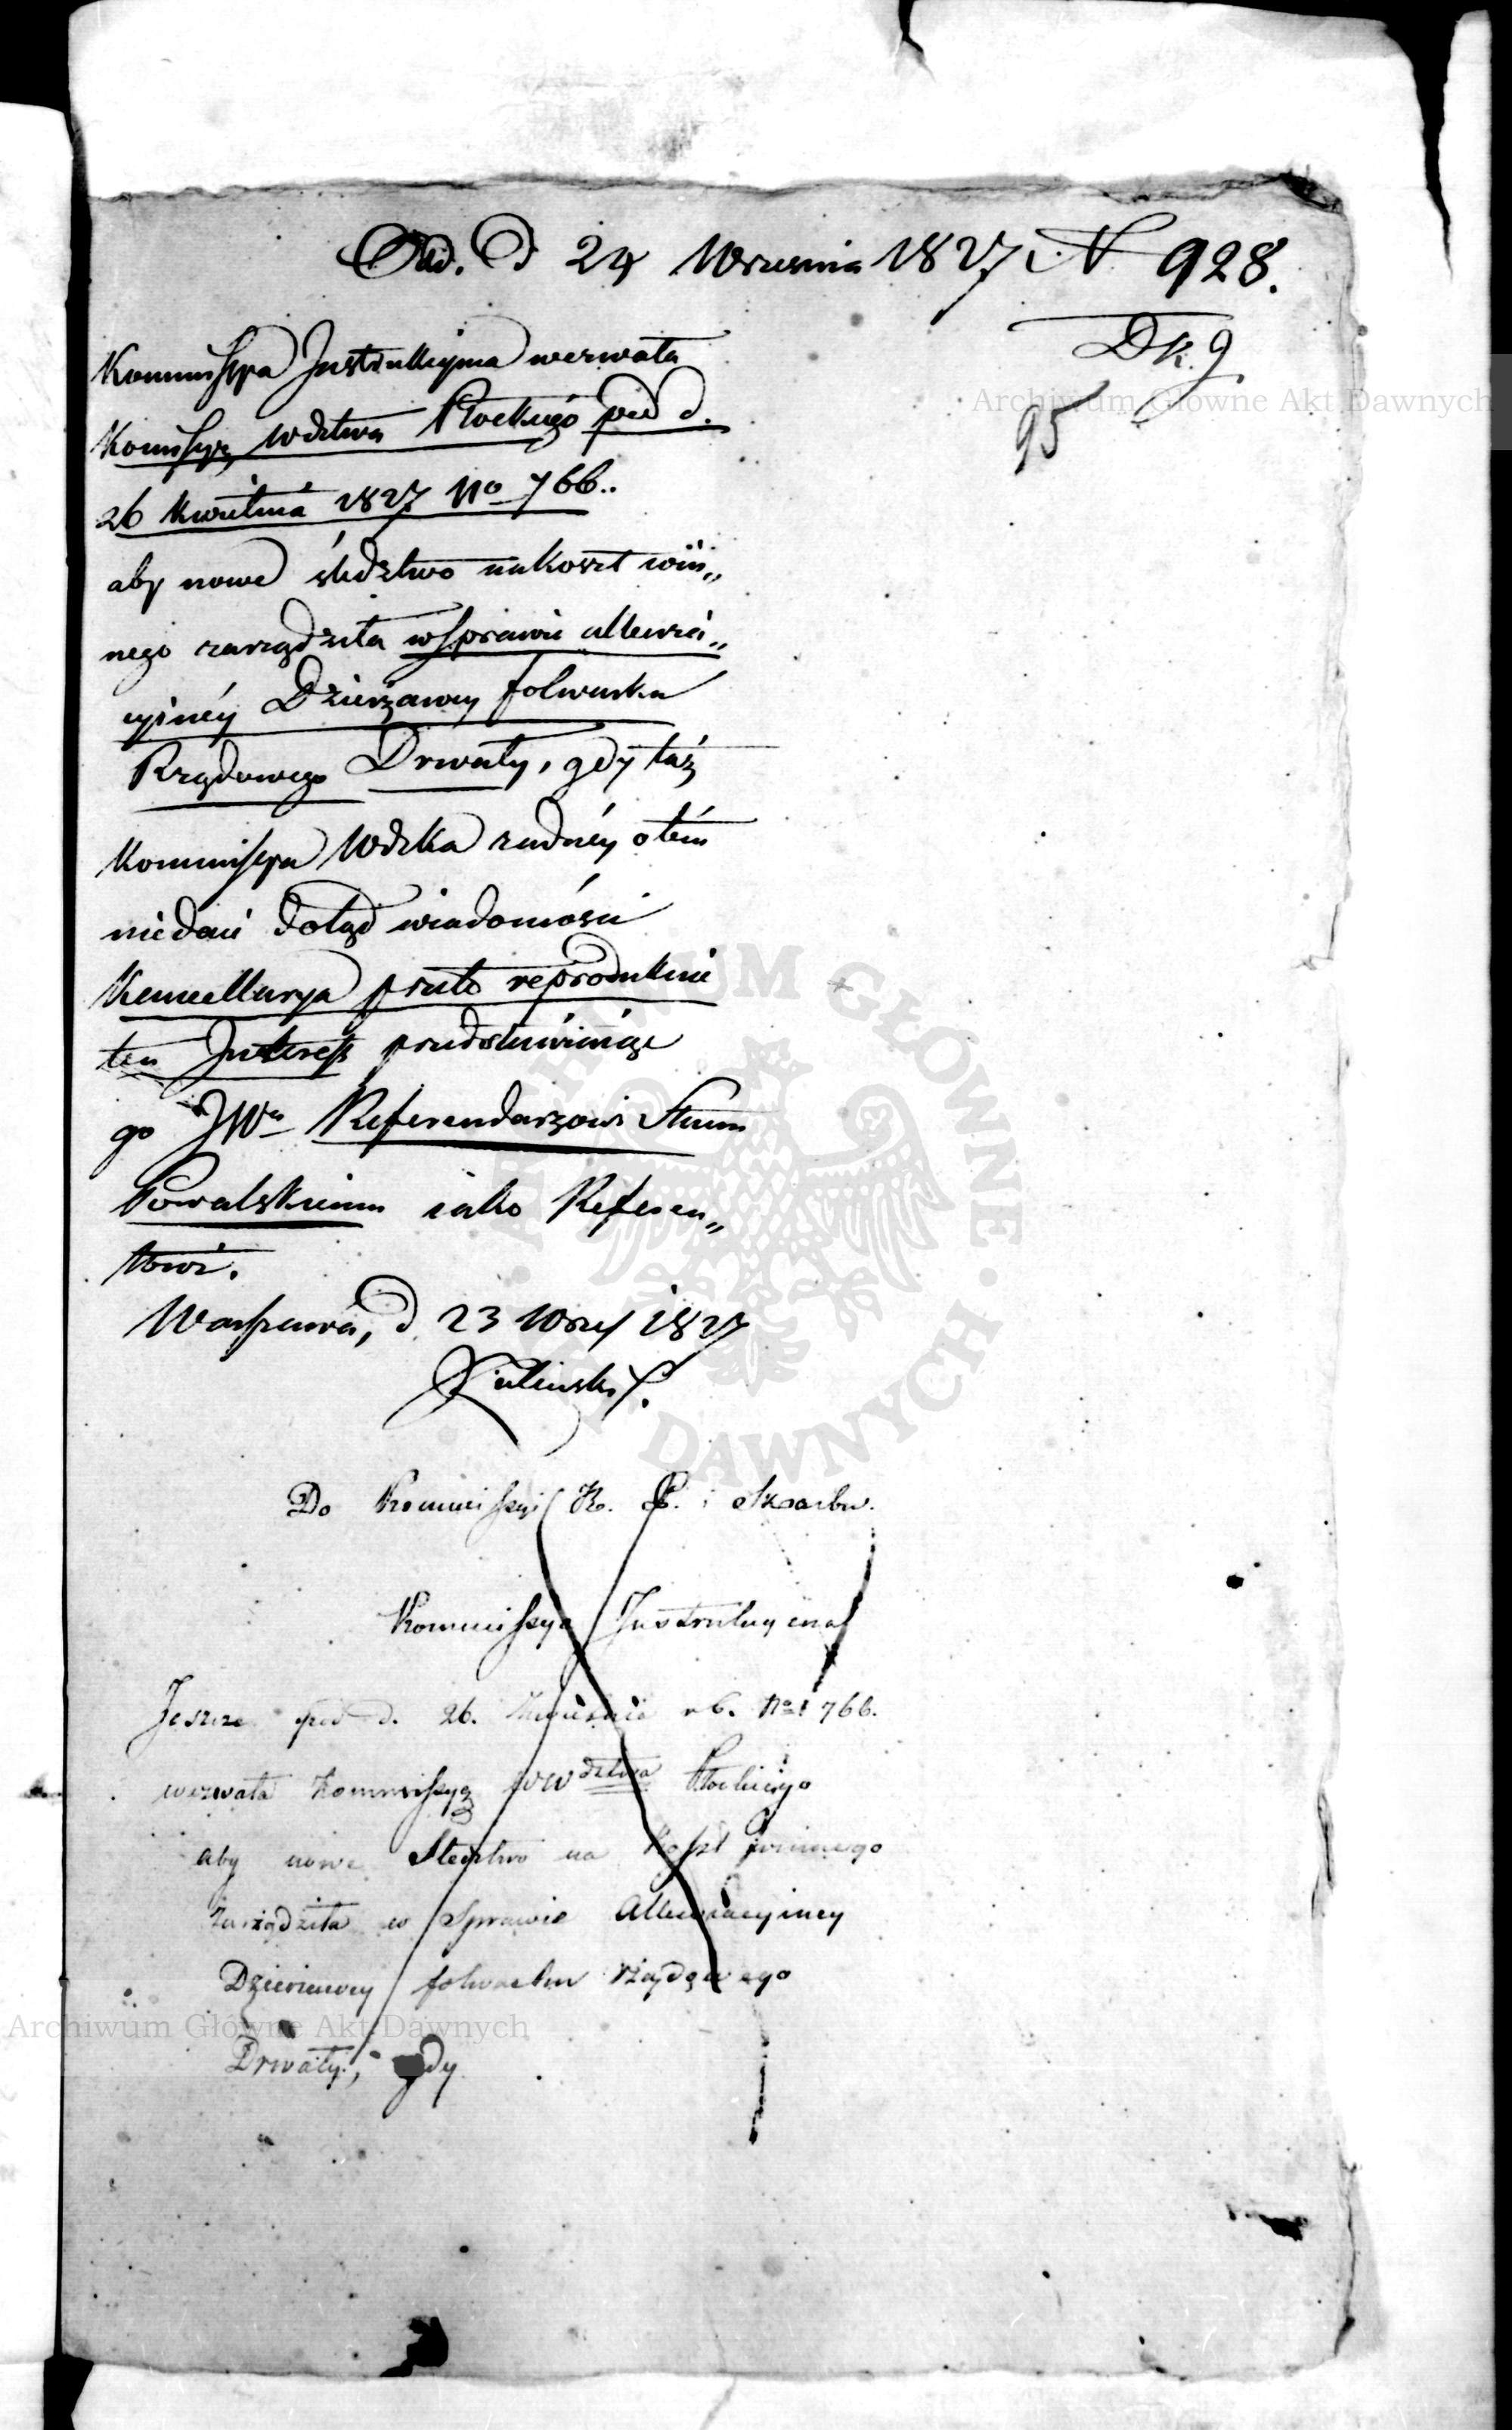 Odd. D 24 Wrzesnia 1827 N 928.
DK. 9
95
Kommissya Instrukcyina wezwała
Komissyę Wdztwa Płockiego pod d.
26 Kwietnia 1827 No 766..
aby nowe śledztwo nakoszt win„
nego zarządziła wsprawie allewia„
cyinéy Dzierżawcy folwarku
Rządowego Drwały, gdy táż
Kommissya Wdzka żadnéy otém
niedaie dotąd wiadomości
Kancellarya przeto reprodukuie
ten Interess przedstawiaiąc
go JWu Referendarzowi Stanu
Kowalskiemu iako Referen„
towi.
Warszawa, d. 23 Wrześ 1827
Kaliński S.
Do Kommissyi R. P. i Skarbu.
Kommissya Instrukcyina
Jeszcze pod d. 26. Kwietnia r b. No 766.
wezwała Kommissyę WWdztwa Płockiego
aby nowe Sledztwo na koszt winnego
Zarządziła w Sprawie Allewiacyiney
Dzierżawcy folwarku rządowego
Drwały, gdy
Archiwum Główne Akt Dawnych
ARCHIWUM GŁÓWNE AKT DAWNYCH
Archiwum Główne Akt Dawnych